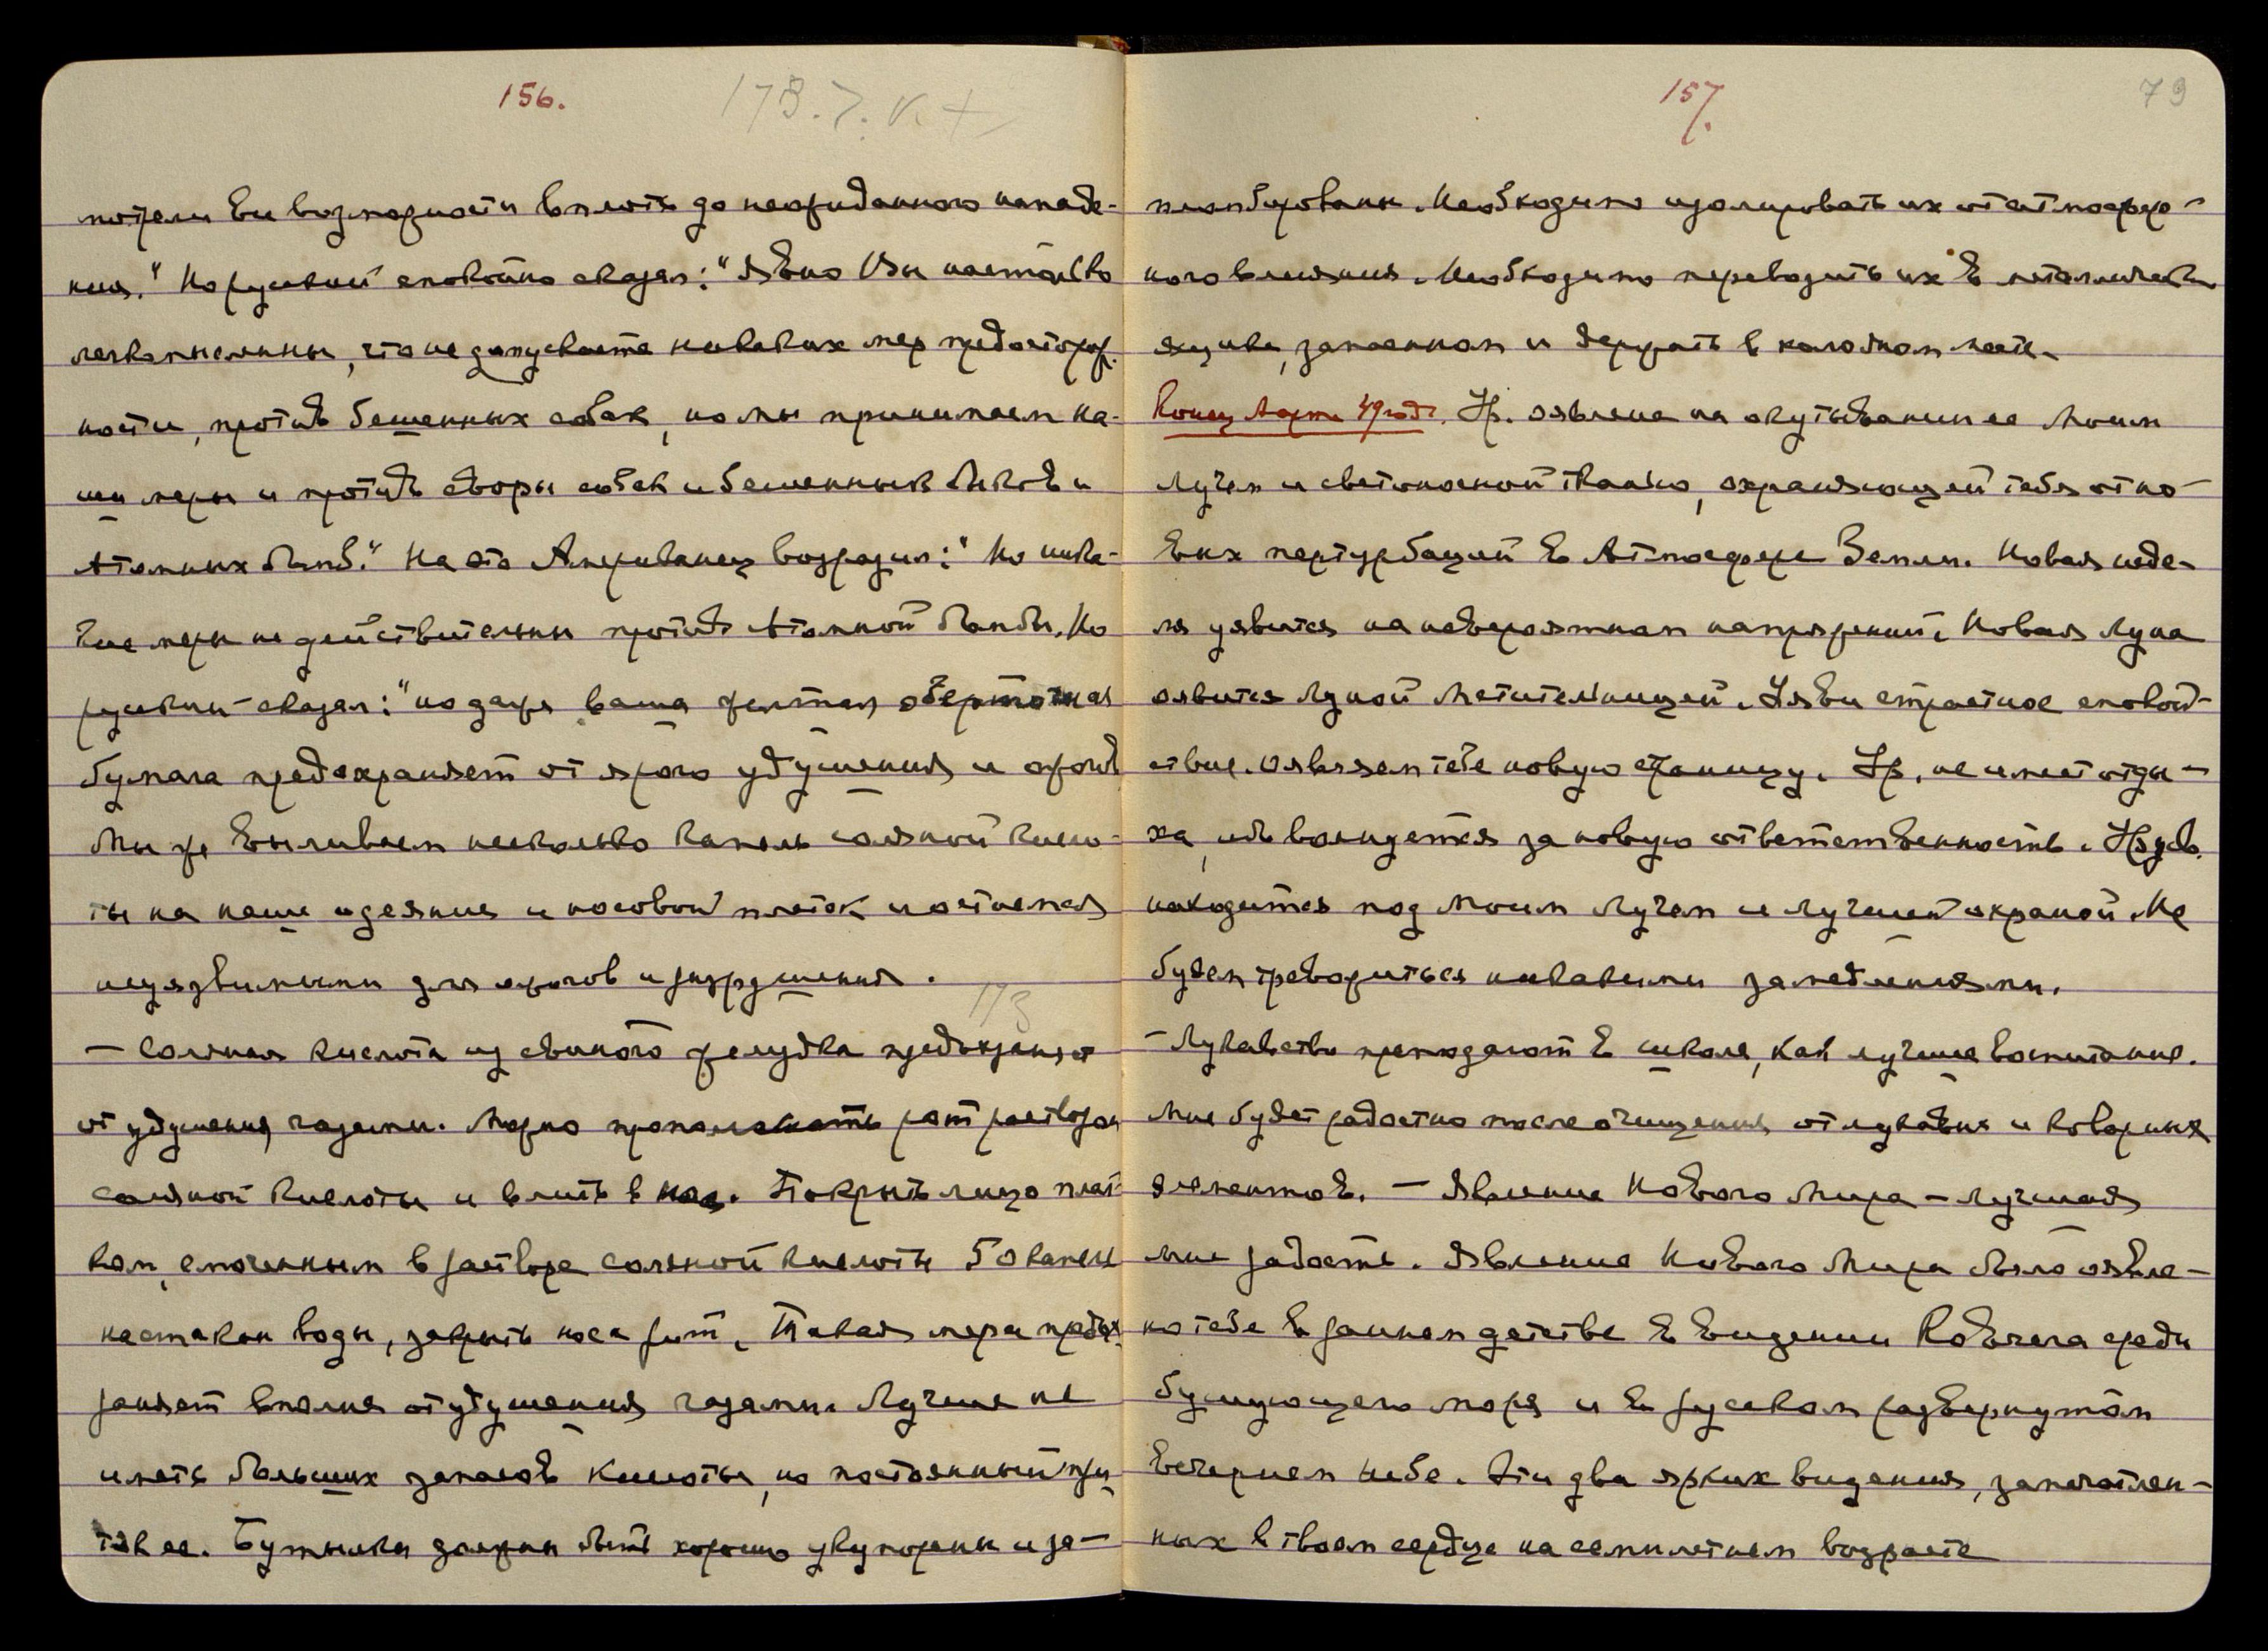 156.
178.7. К +
мотрели Ви возможности вплоть до неожиданного нападе-
ния." Но русский спокойно сказал: "Явно Вы настолько
легкомысленны, что не допускаете никаких мер предосторож.
ности, против бешенных собак, но мы принимаем на-
ши меры и против своры собак и бешенных быков и
Атомных бомб." На это Американец возразил: "Но ника-
кие меры не действительны против Атомной бомбы. Но
русский сказал: "но даже ваша желтая оберточная
бумага предохраняет от ярого удушения и ожогов
Мы же выливаем несколько капель соляной кисло-
ты на наше одеяние и носовой платок и остаемся
неуязвимыми для ожогов и разрушения.
178
— Соляная кислота из свиного желудка предохраняет
от удушения газами. Можно прополаскать рот раствором
соляной кислоты и влить в нос. Покрыть лицо плат-
ком, смоченным в растворе соляной кислоты 50 капель
на стакан воды, закрыть нос и рот. Такая мера предох-
раняет вполне от удушения газами. Лучше не
иметь больших запасов кислоты, но постоянный при-
ток ее. Бутылки должны быть хорошо укупорены и за-
157.
79
пломбированы. Необходимо изолировать их от атмосфер-
ного влияния. Необходимо переводить их в металлическ.
ящике, запаенном и держать в холодном месте.
Конец Марта 49 года. Ур. явлена на окутывании ее Моим
Лучем и светоносной тканью, охраняющей тебя от но-
вых пертурбаций в Атмосфере Земли. Новая неде-
ля уявится на невероятном напряжении. Новая Луна
оявится Луной Мстительницей. Уяви страстное спокой-
ствие. Оявляем тебе новую страницу. Ур. не имеет отды-
ха, ибо волнуется за новую ответственность. Ур. дов.
находится под Моим Лучем и лучшей охраной. Не
будем тревожиться никакими замедлениями.
— Лукавство преподают в школе, как лучшее воспитание.
Мне будет радостно после очищения от лукавых и коварных
элементов. — Явление Нового Мира — лучшая
мне радость. Явление Нового Мира было оявле-
но тебе в раннем детстве в видении Ковчега среди
бушующего моря и в русском развернутом
вечернем небе. Эти два ярких видения, запечатлен-
ных в твоем сердце на семилетнем возрасте